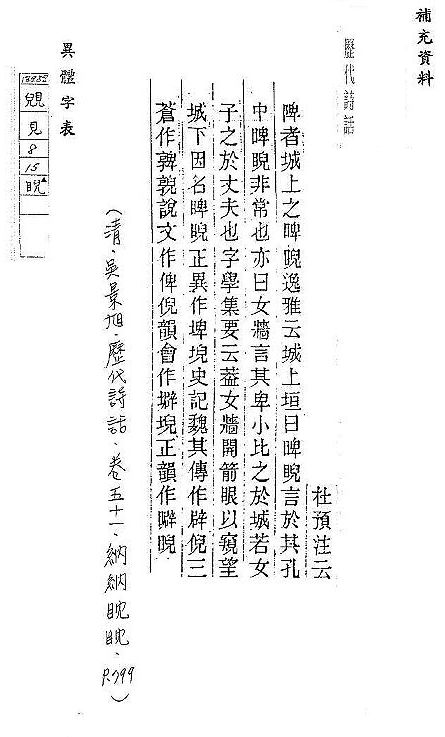 補充資料
歷代詩話
杜預注云
陴者城上之睥睨逸雅云城上垣曰睥睨言於其孔
中睥睨非常也亦曰女牆言其卑小比之於城若女
子之於丈夫也字學集要云葢女牆開箭眼以窺望
城下因名睥睨正異作埤堄史記魏其傳作辟倪三
蒼作㪏䡀說文作俾倪韻會作壀堄正韻作䁹睨
(清．吳景旭．歷代詩話．卷五十一．納納睨睨．P.599)
異體字表
覞
見
8
15
睨